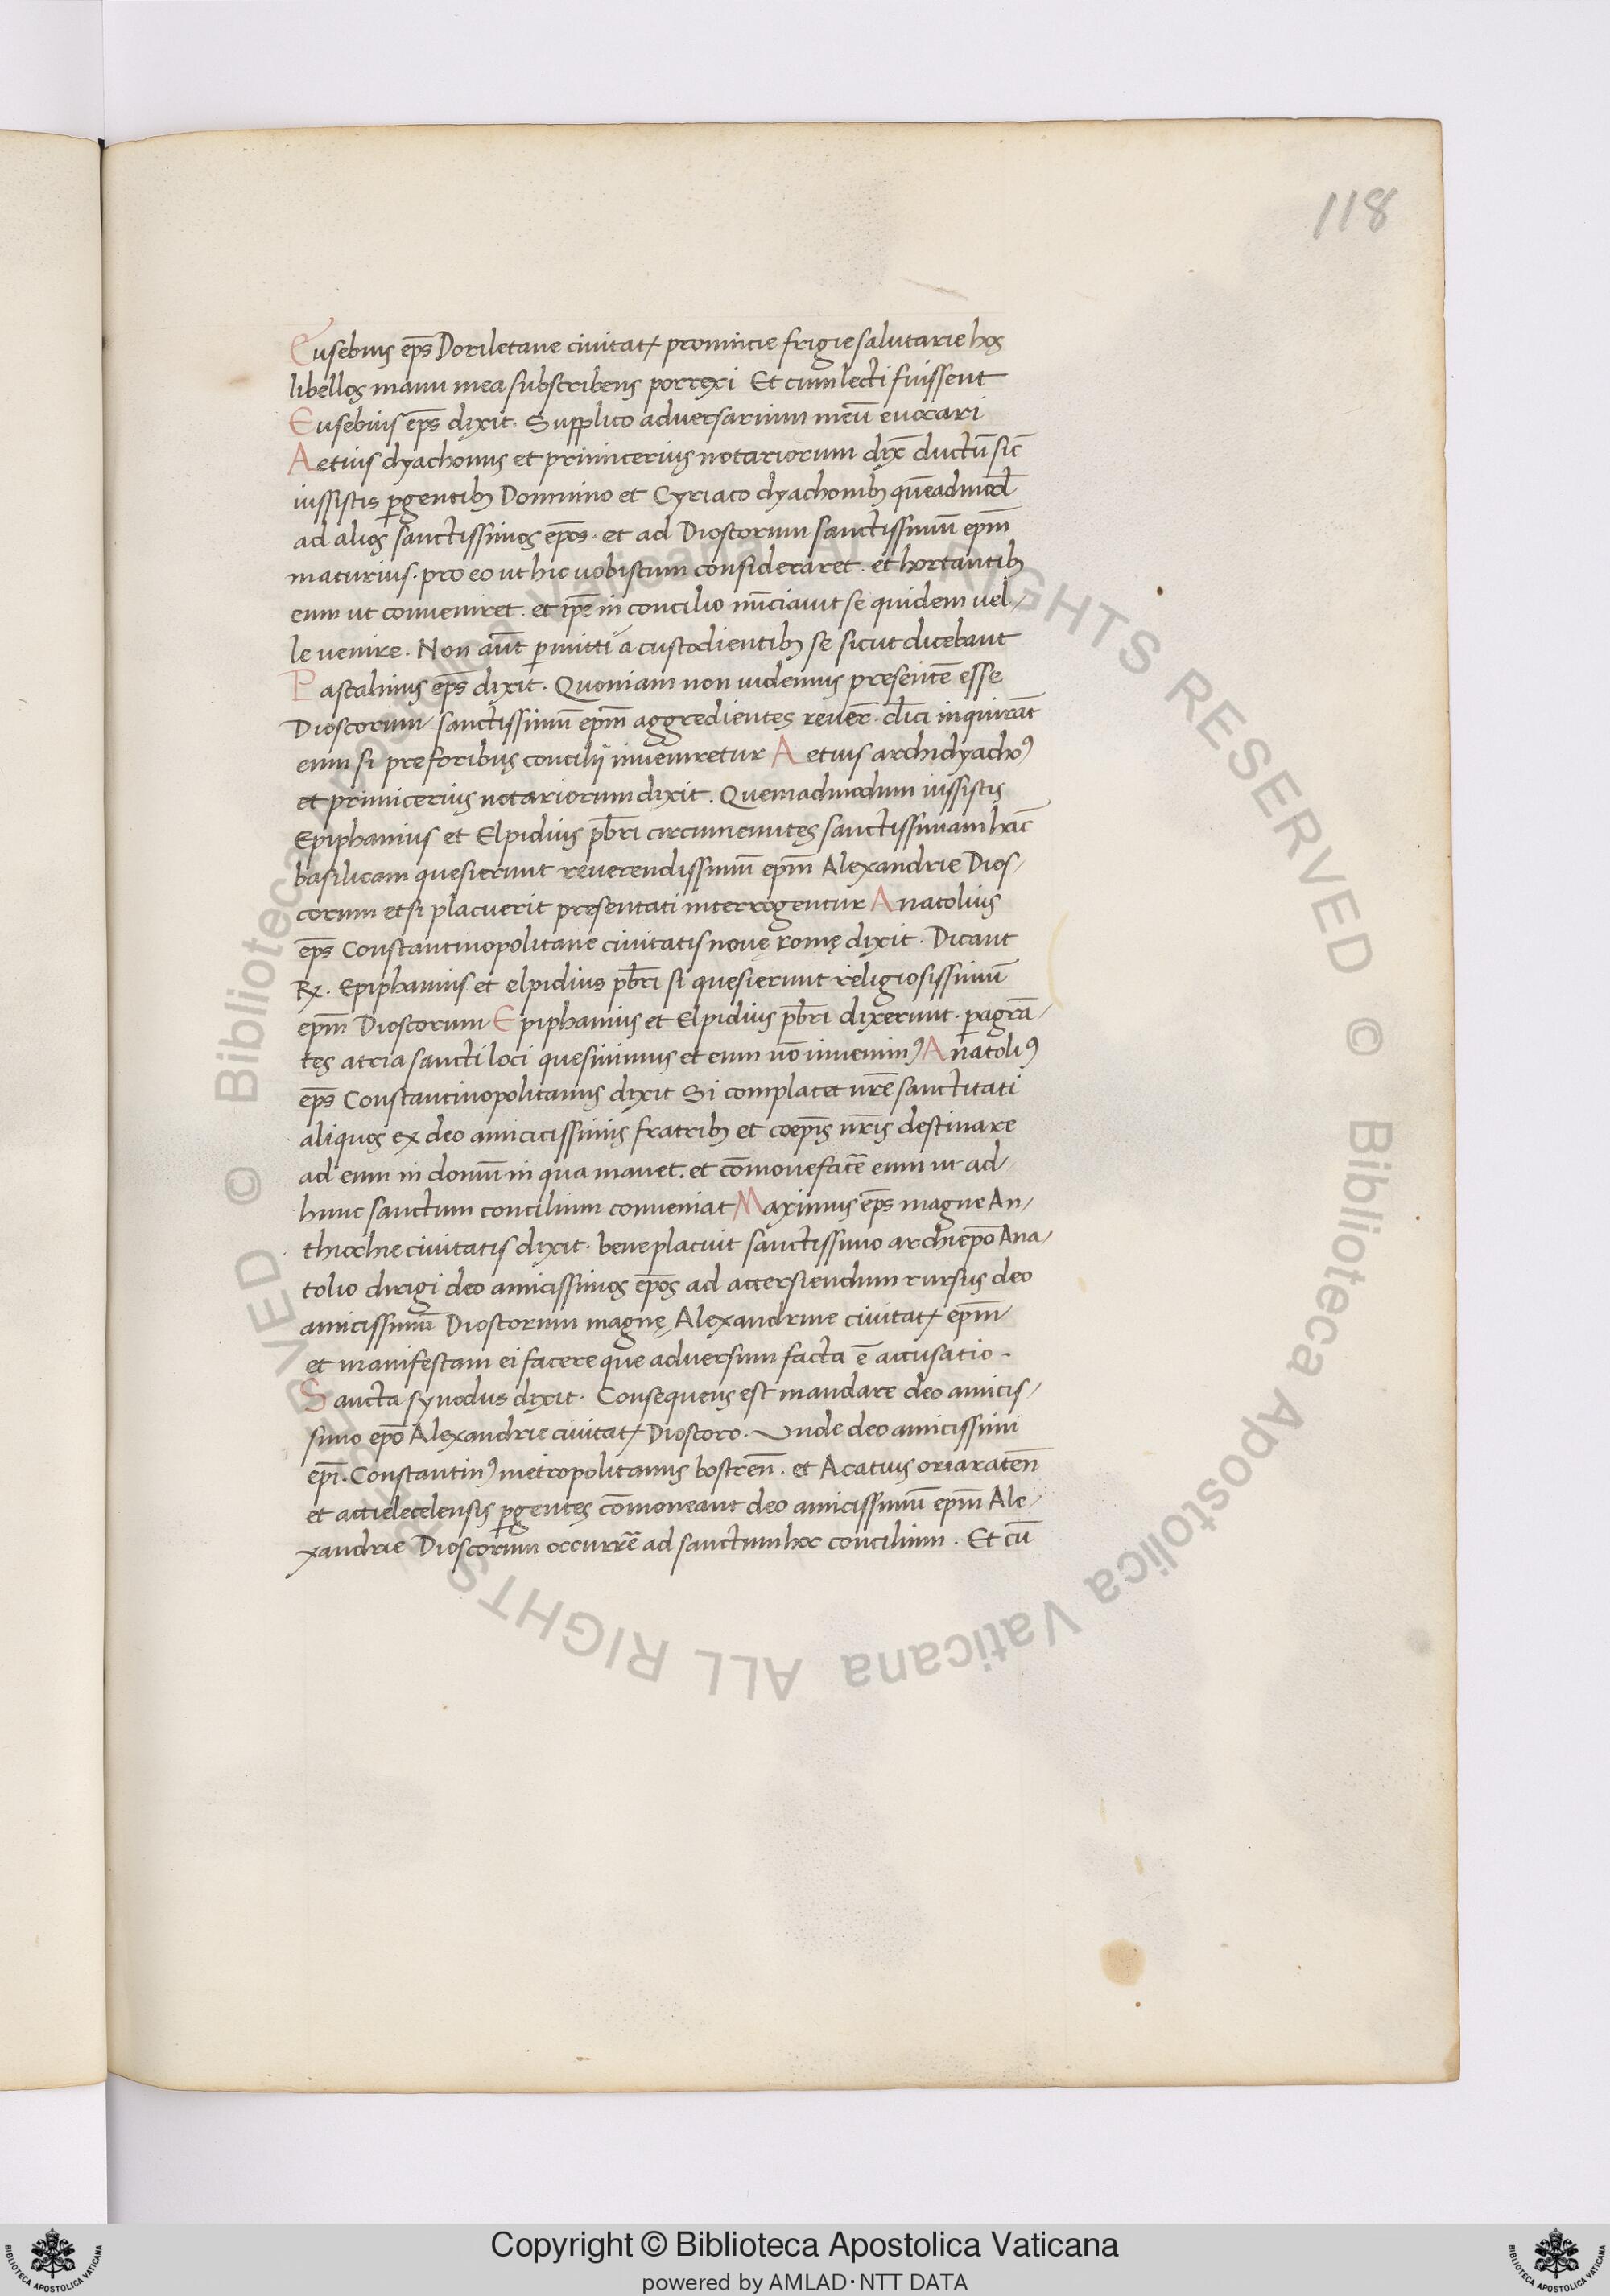 118
Eusebius ep̄s Doriletane ciuitatꝭ prouincie frigie salutarie hos
libellos manu mea subscribens porrexi Et cum lecti fuissent
Eusebius ep̄s dixit. Supplico adversarium meū euocari
Aetius dyachonus et primicerius notariorum dix̄ ductū sic̄
iussistis ꝑgentibꝫ Domnino et Cyriaco dyachonibꝫ quēadmod̄
ad alios sanctissimos ep̄os. et ad Dioscorum sanctissimū ep̄m
maturius. pro eo ut hic uobiscum consideraret. et hortantibꝫ
eum ut conveniret. et ip̄e in concilio nūciauit se quidem uel-
le venire. Non aūt ꝑmitti a custodientibꝫ se sicut dicebant
Pascalinus ep̄s dixit. Quoniam non uidemus presentē esse
Dioscorum sanctissimū ep̄m aggredientes reuer̄. cl̄ici inquirāt
eum si pre foribus concilij inueniretur Aetius archidyachoꝰ
et primicerius notariorum dixit. Quemadmodum iussistis
Epiphanius et Elpidius pb̄ri circumeuntes sanctissimam hāc
basilicam quesierunt reuerendissimū ep̄m Alexandrie Dios-
corum et si placuerit presentati interrogentur Anatolius
ep̄s Constantinopolitane ciuitatis nouę romę dixit. Dicant
R͓. Epiphanius et elpidius pb̄ri si quesierunt religiosissimū
ep̄m Dioscorum Epiphanius et Elpidius pb̄ri dixerunt. ꝑagrā-
tes atria sancti loci quesiuimus et eum nō inuenimꝰ Anatoliꝰ
ep̄s Constantinopolitanus dixit Si complacet ur̄e sanctitati
aliquos ex deo amicicissimis fratribꝫ et coep̄is ur̄is destinare
ad eum in domū in qua manet. et cōmonefacē eum ut ad-
hunc sanctum concilium conueniat Maximus ep̄s magne An-
thiochie ciuitatis dixit. bene placuit sanctissimo archiep̄o Ana-
tolio dirigi deo amicissimos ep̄os ad accersiendum rursus deo
amicissimū Dioscorum magnę Alexandrine ciuitatꝭ ep̄m
et manifestam ei facere que adversum facta ē accusatio.
Sancta synodus dixit. Consequens est mandare deo amicis-
simo ep̄o Alexandrie ciuitatꝭ Dioscoro. Unde deo amicissimi
ep̄i. Constantinꝰ metropolitanus bostreñ. et Acatius oriarateñ
et accielecelensis ꝑgentes cōmoneant deo amicissimū ep̄m Ale-
xandrie Dioscorum occurrē̄ ad sanctum hoc concilium. Et cū
© Biblioteca Apostolica Vaticana ALL RIGHTS RESERVED
© Biblioteca Apostolica Vaticana ALL RIGHTS RESERVED
Copyright © Biblioteca Apostolica Vaticana
powered by AMLAD·NTT DATA
BIBLIOTECA APOSTOLICA VATICANA
BIBLIOTECA APOSTOLICA VATICANA